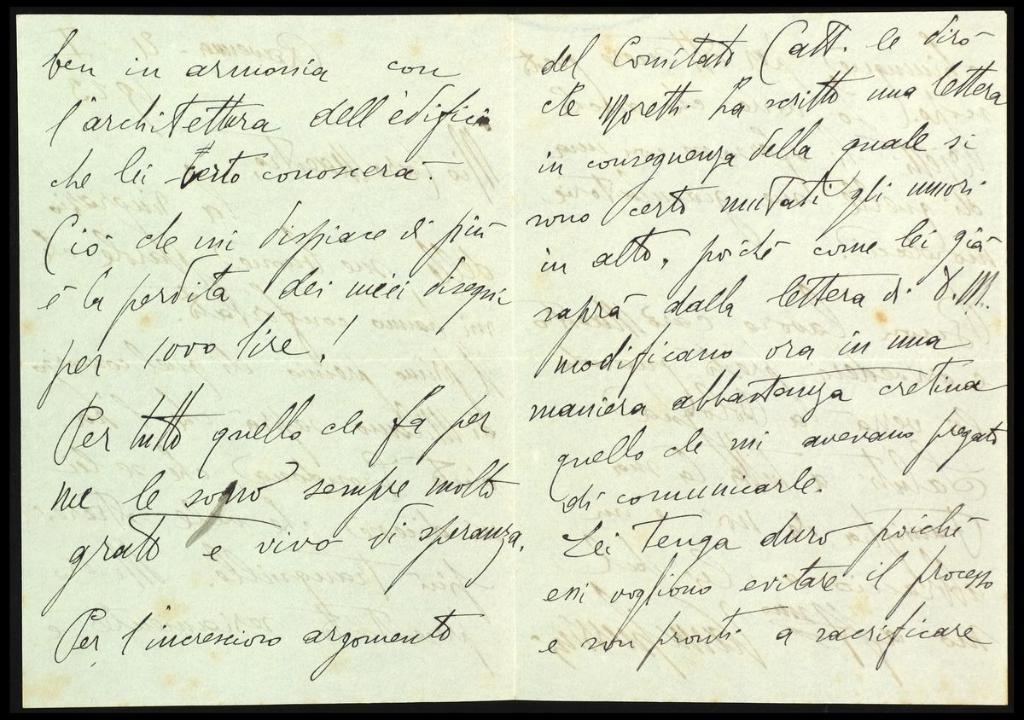 ben in armonia con
l'architettura dell'edificio
che lei certo conoscerà.
Ciò che mi dispiace di più
è la perdita dei miei disegni
per 1000 lire!
Per tutto quello che fa per
me le sono sempre molto
grato e vivo di speranza.
Per l'increscioso argomento
del Comitato Catt. le dirò
che Moretti ha scritto una lettera
in conseguenza della quale si
sono certo mutati gli umori
in alto, poichè come lei già
saprà dalla lettera di D. M.
modificano ora in una
maniera abbastanza cretina
quello che mi avevano pregato
di comunicarle.
Lei tenga duro poichè
essi vogliono evitare il processo
e son pronti a sacrificare